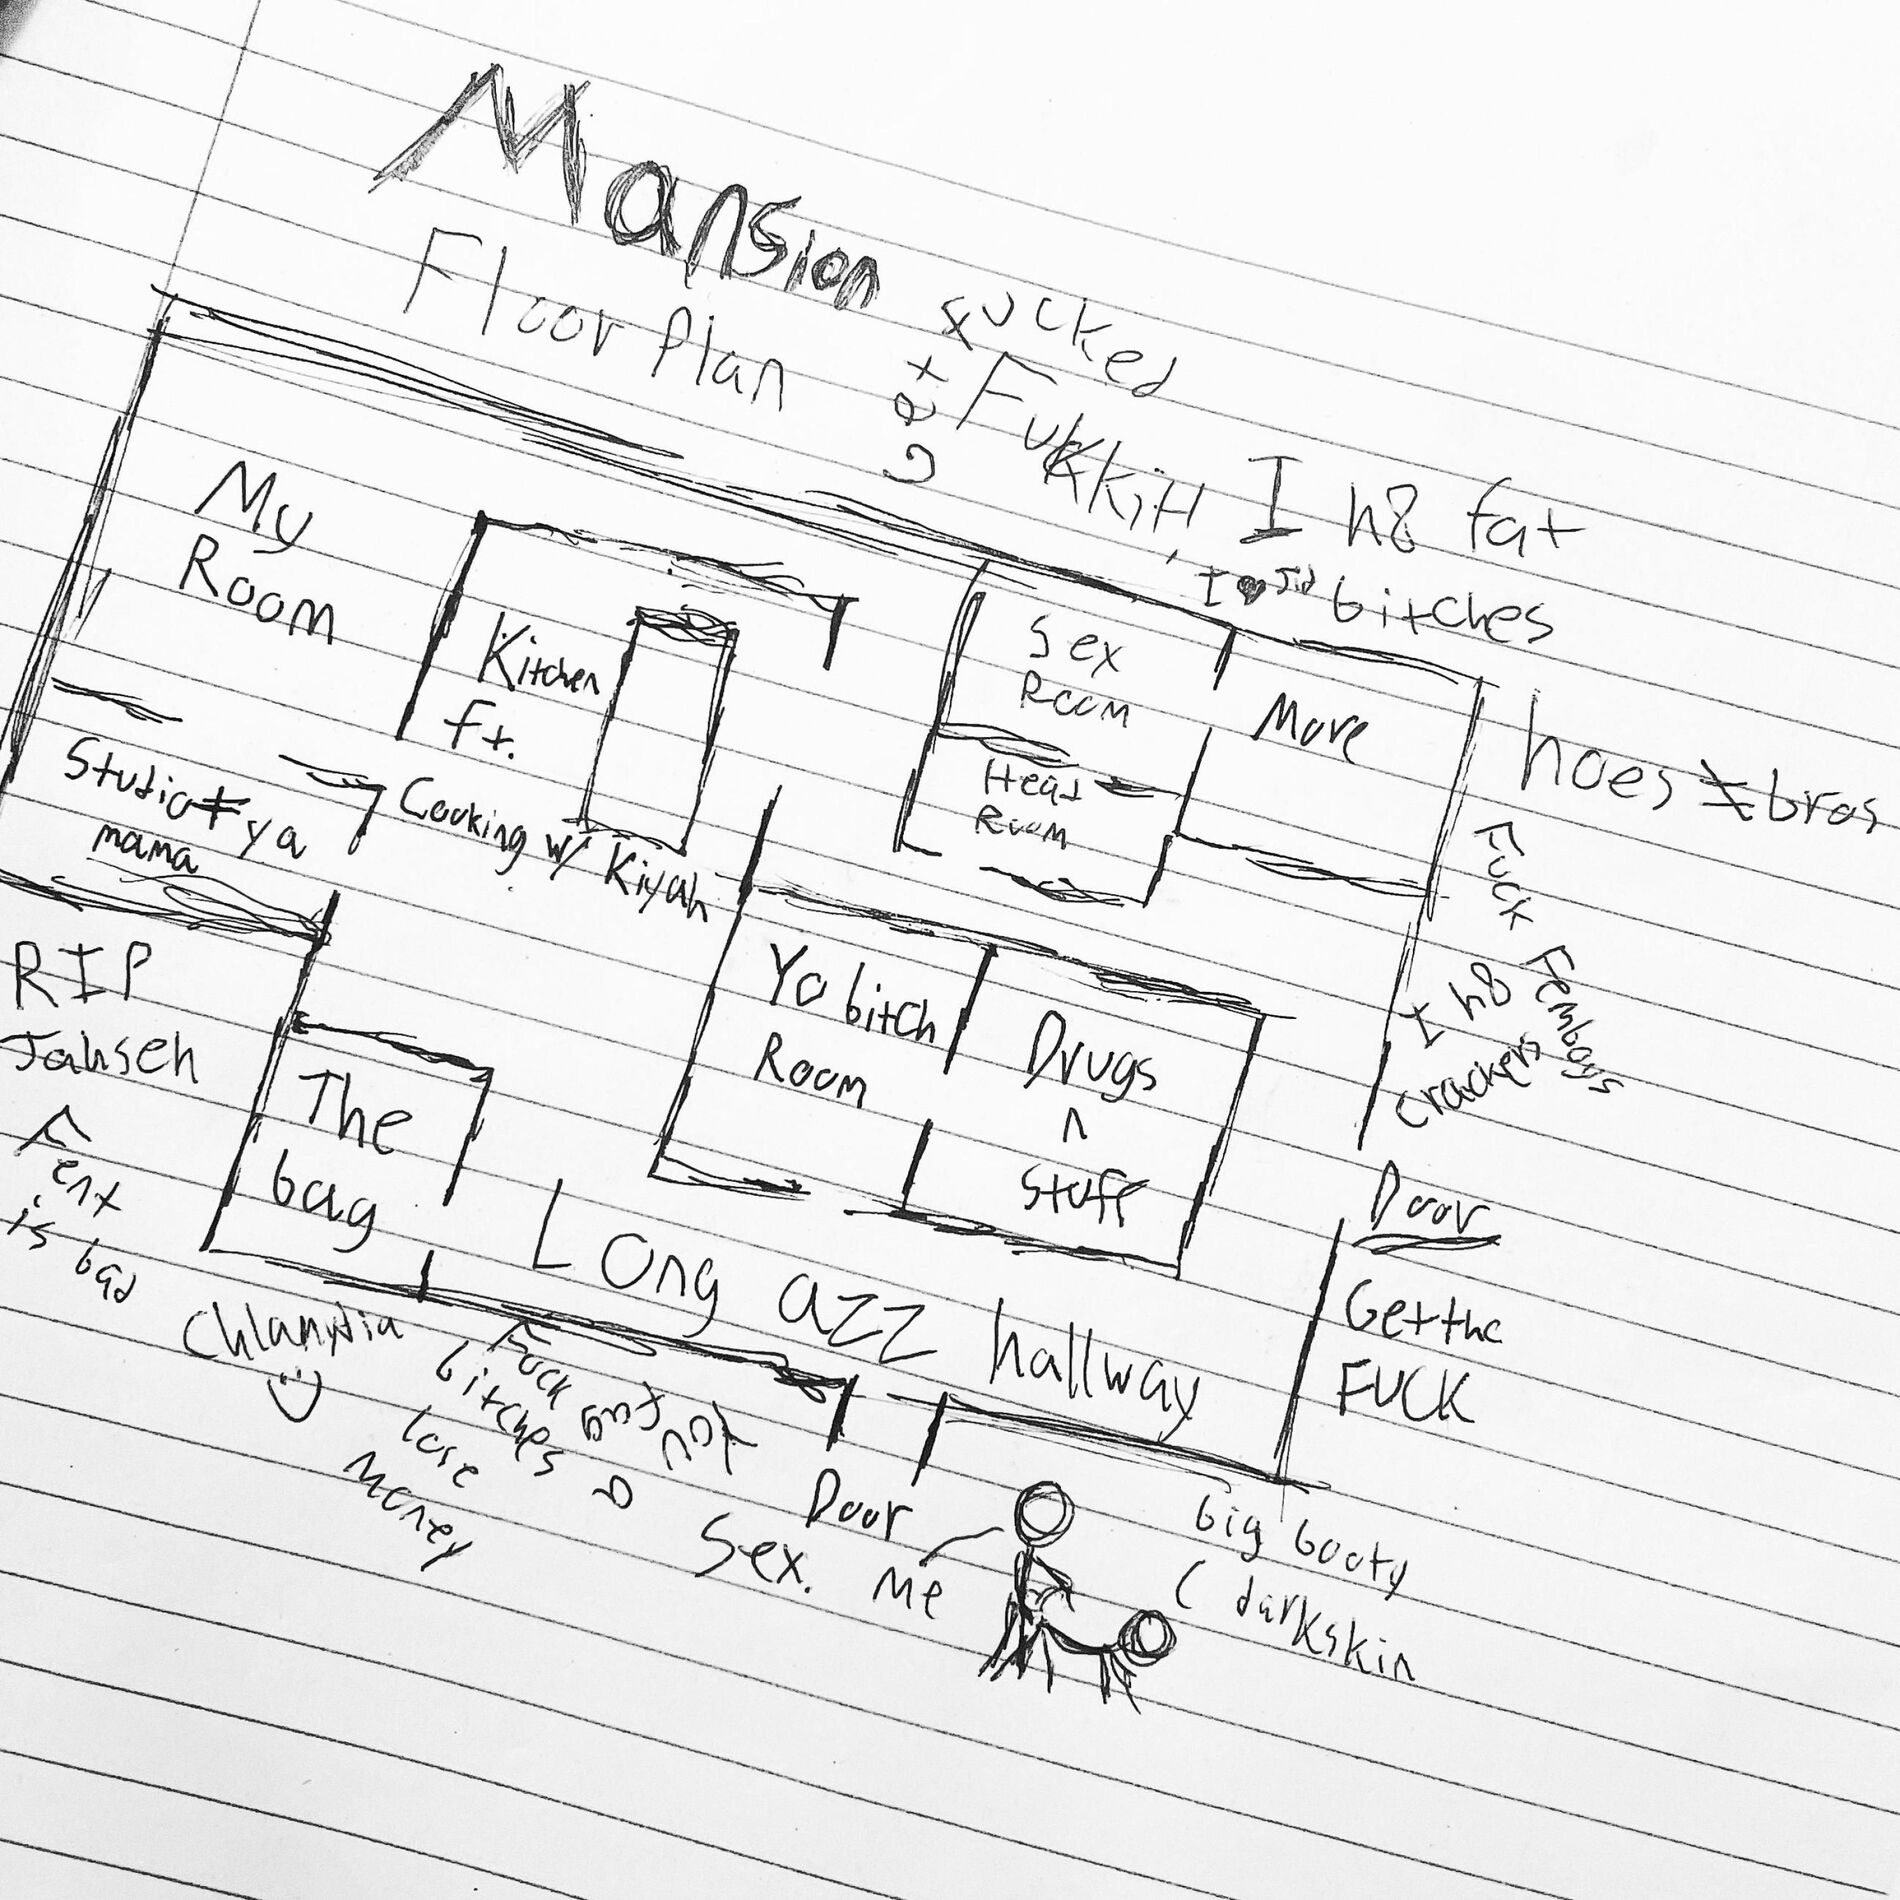 Mansion
Floor Plan
Get
fucked
Fukkit,
I h8 fat
bitches
I ♥ Jid
My
Room
Kitchen
ft.
Cooking w/ Kiyah
Sex
Room
More
Head
Room
hoes ≠ bros
Fuck Femboys
I h8
crackers
Studio ≠ ya
mama
RIP
Jahseh
Fent
is bad
The
bag
Yo bitch
Room
Drugs
n
Stuff
Long azz hallway
Door
Get the
FUCK
Chlamydia
Fuck
bitches
lose
money
Sex.
Door
Me
big booty
darkskin